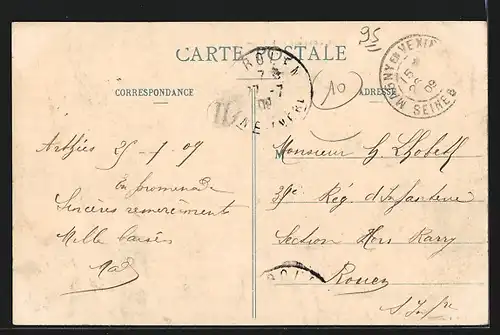 95
CARTE POSTALE
CORRESPONDANCE
ADRESSE
10
ROUEN
MAGNY EN VEXIN
09
SEINE
Arthies 25-7-09
En promenade
Sincères remerciements
Mille baisers
Monsieur
39e Rég. d'Infanterie
Section Hors Rang
Rouen
S. Infre
ROU